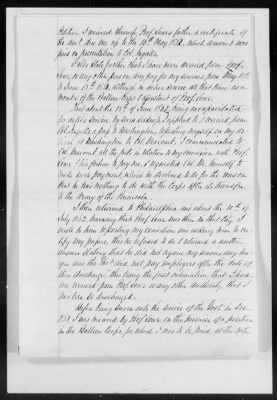 Petition I received through Prof. Lowe's father a certificate of
the amt. due me up to the 10th May 1862, which amount was
paid on presentation to Col.
I also state further that I have never received from Prof.
Lowe or any other person any pay for my services from May 11th
to June 13th 1862, although in active service all that time as a
member of the Balloon Corps & Assistant of Prof. Lowe.
That about the 13th of June 1862, being incapacitated for
active service by Swamp I applied to & received from
Col. a pass to Washington, reporting myself on my
at Washington to Col. Macomb, I communicated to
Col. Macomb all the facts in relation to my connexion with Prof.
Lowe & his failure to pay me, & requested Col. M. himself to
make such payment, which he declined to do for the reason
that he had nothing to do with the Corps after its transfer
to the Army of the Peninsula.
I then returned to Philadelphia and about the 10th of
July 1862, learning that Prof. Lowe was then in this City, I
wrote to him repeating my conviction and asking him to
my papers, this he refused to do & returned a written
answer stating that he did not require my services any
and the Govt. did not pay employees after the date of
their discharge, this being the first intimation that I had
ever received from Prof. Lowe or any other authority, that I
was to be so discharged.
Before being sworn into the service of the Govt. in Dec.
1861 I was induced by Prof. Lowe, on the promise of a position
in the Balloon Corps, for which I was to be paid at the rate